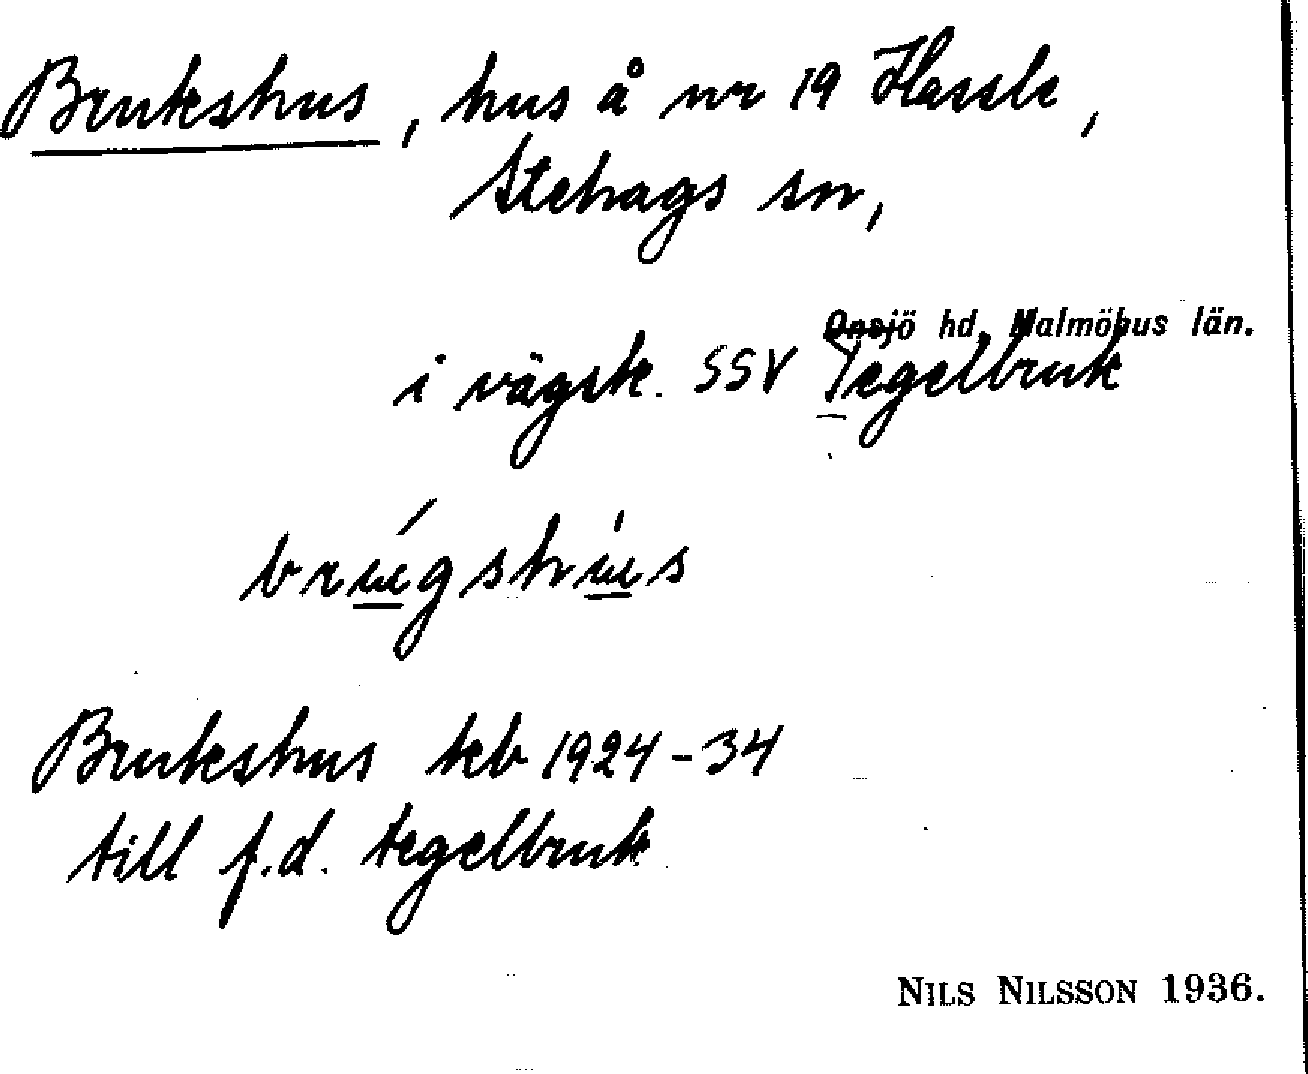 Brukshus, hus å nr 19 Hassle,
Stehags sn,
Onsjö hd, Malmöhus län.
i vägsk. SSV Tegelbruk
brúgshús
Brukshus kb 1924-34
till f.d. tegelbruk
NILS NILSSON 1936.